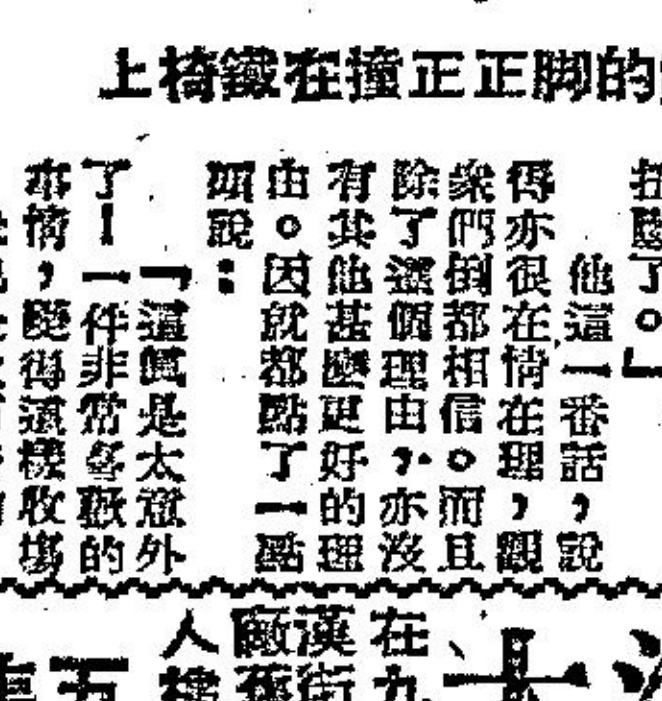 的脚正正撞在鐵椅上
了。」
他這一番話，說
得亦很在情在理，觀
衆們倒都相信。而且
除了這個理由，亦沒
有其他甚麼更好的理
由。因就都點了一點
頭說：
「這眞是太意外
了！一件非常歡的
事情，變得這樣收塲
在九
漢街
人樓
五